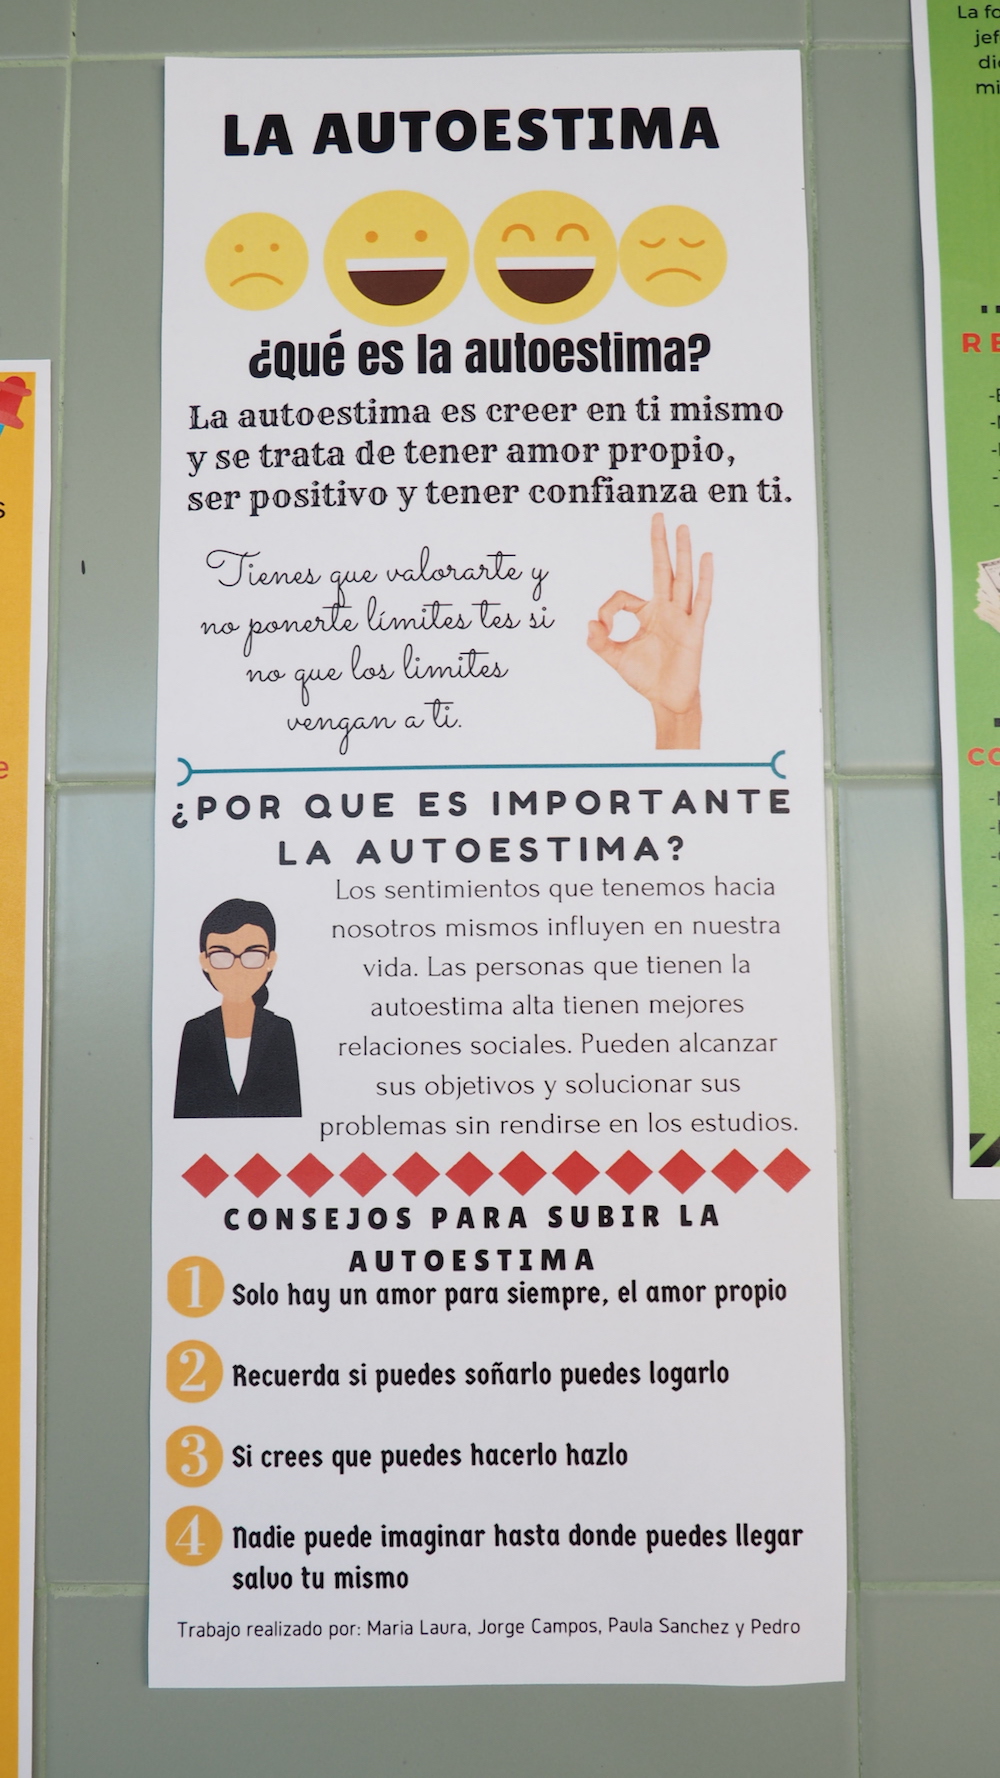 LA AUTOESTIMA
¿Qué es la autoestima?
La autoestima es creer en ti mismo
y se trata de tener amor propio,
ser positivo y tener confianza en ti.
Tienes que valorarte y
no ponerte límites tes si
no que los limites
vengan a ti.
¿POR QUE ES IMPORTANTE
LA AUTOESTIMA?
Los sentimientos que tenemos hacia
nosotros mismos influyen en nuestra
vida. Las personas que tienen la
autoestima alta tienen mejores
relaciones sociales. Pueden alcanzar
sus objetivos y solucionar sus
problemas sin rendirse en los estudios.
CONSEJOS PARA SUBIR LA
AUTOESTIMA
1 Solo hay un amor para siempre, el amor propio
2 Recuerda si puedes soñarlo puedes logarlo
3 Si crees que puedes hacerlo hazlo
4 Nadie puede imaginar hasta donde puedes llegar
salvo tu mismo
Trabajo realizado por: Maria Laura, Jorge Campos, Paula Sanchez y Pedro
La